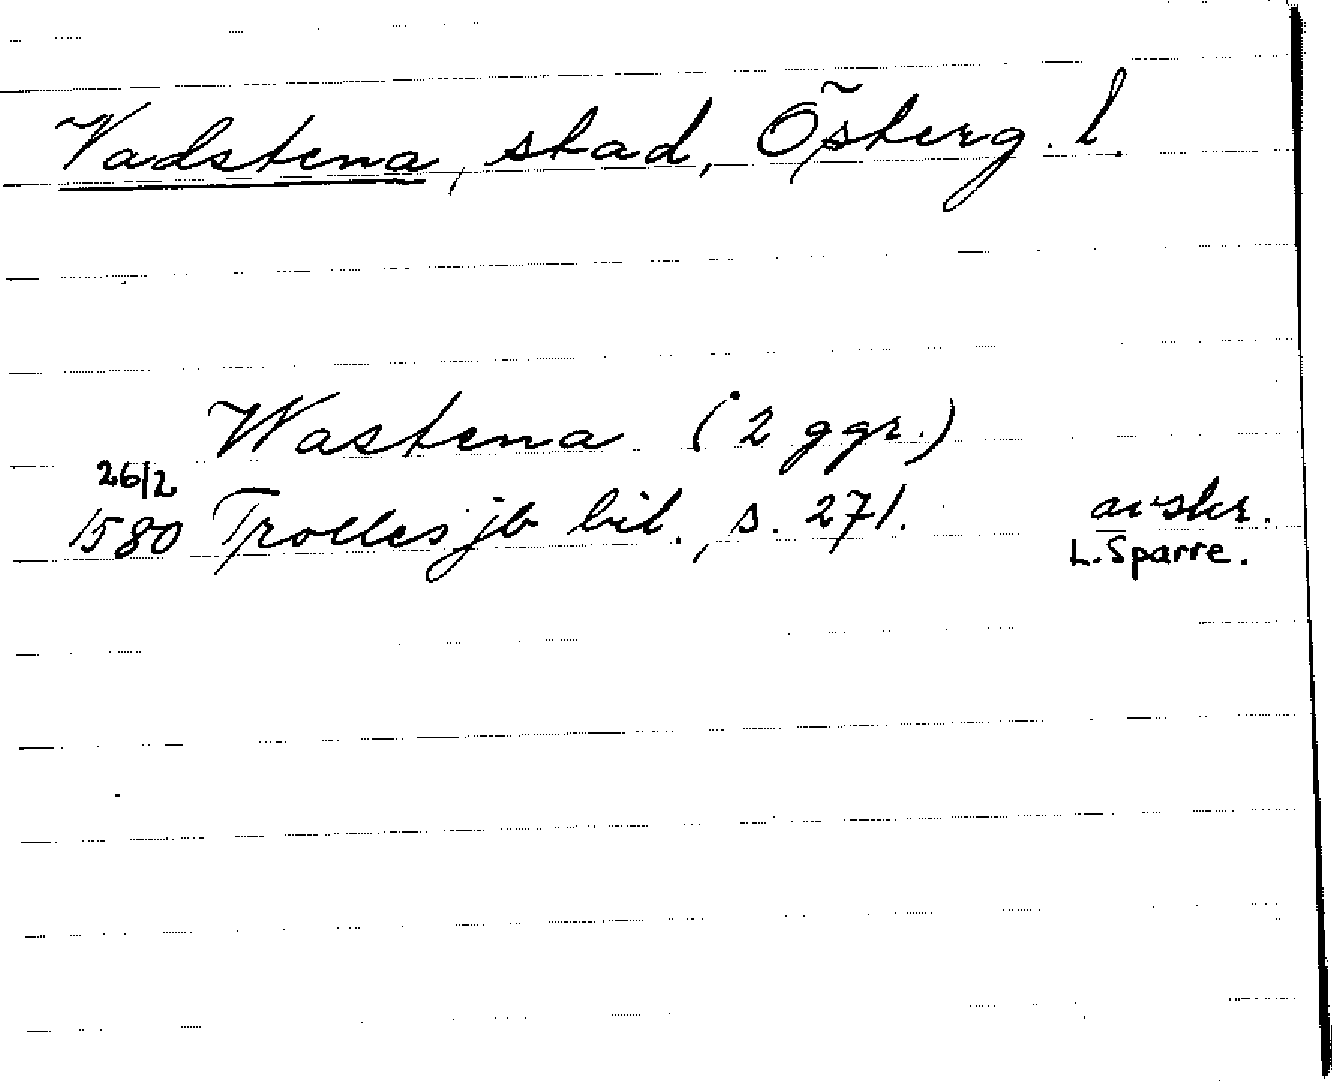 Vadstena, stad, Österg. l.
Wastena (2 ggr.)
26/2
1580 Trolles jb bil., s. 271. avskr.
L. Sparre.